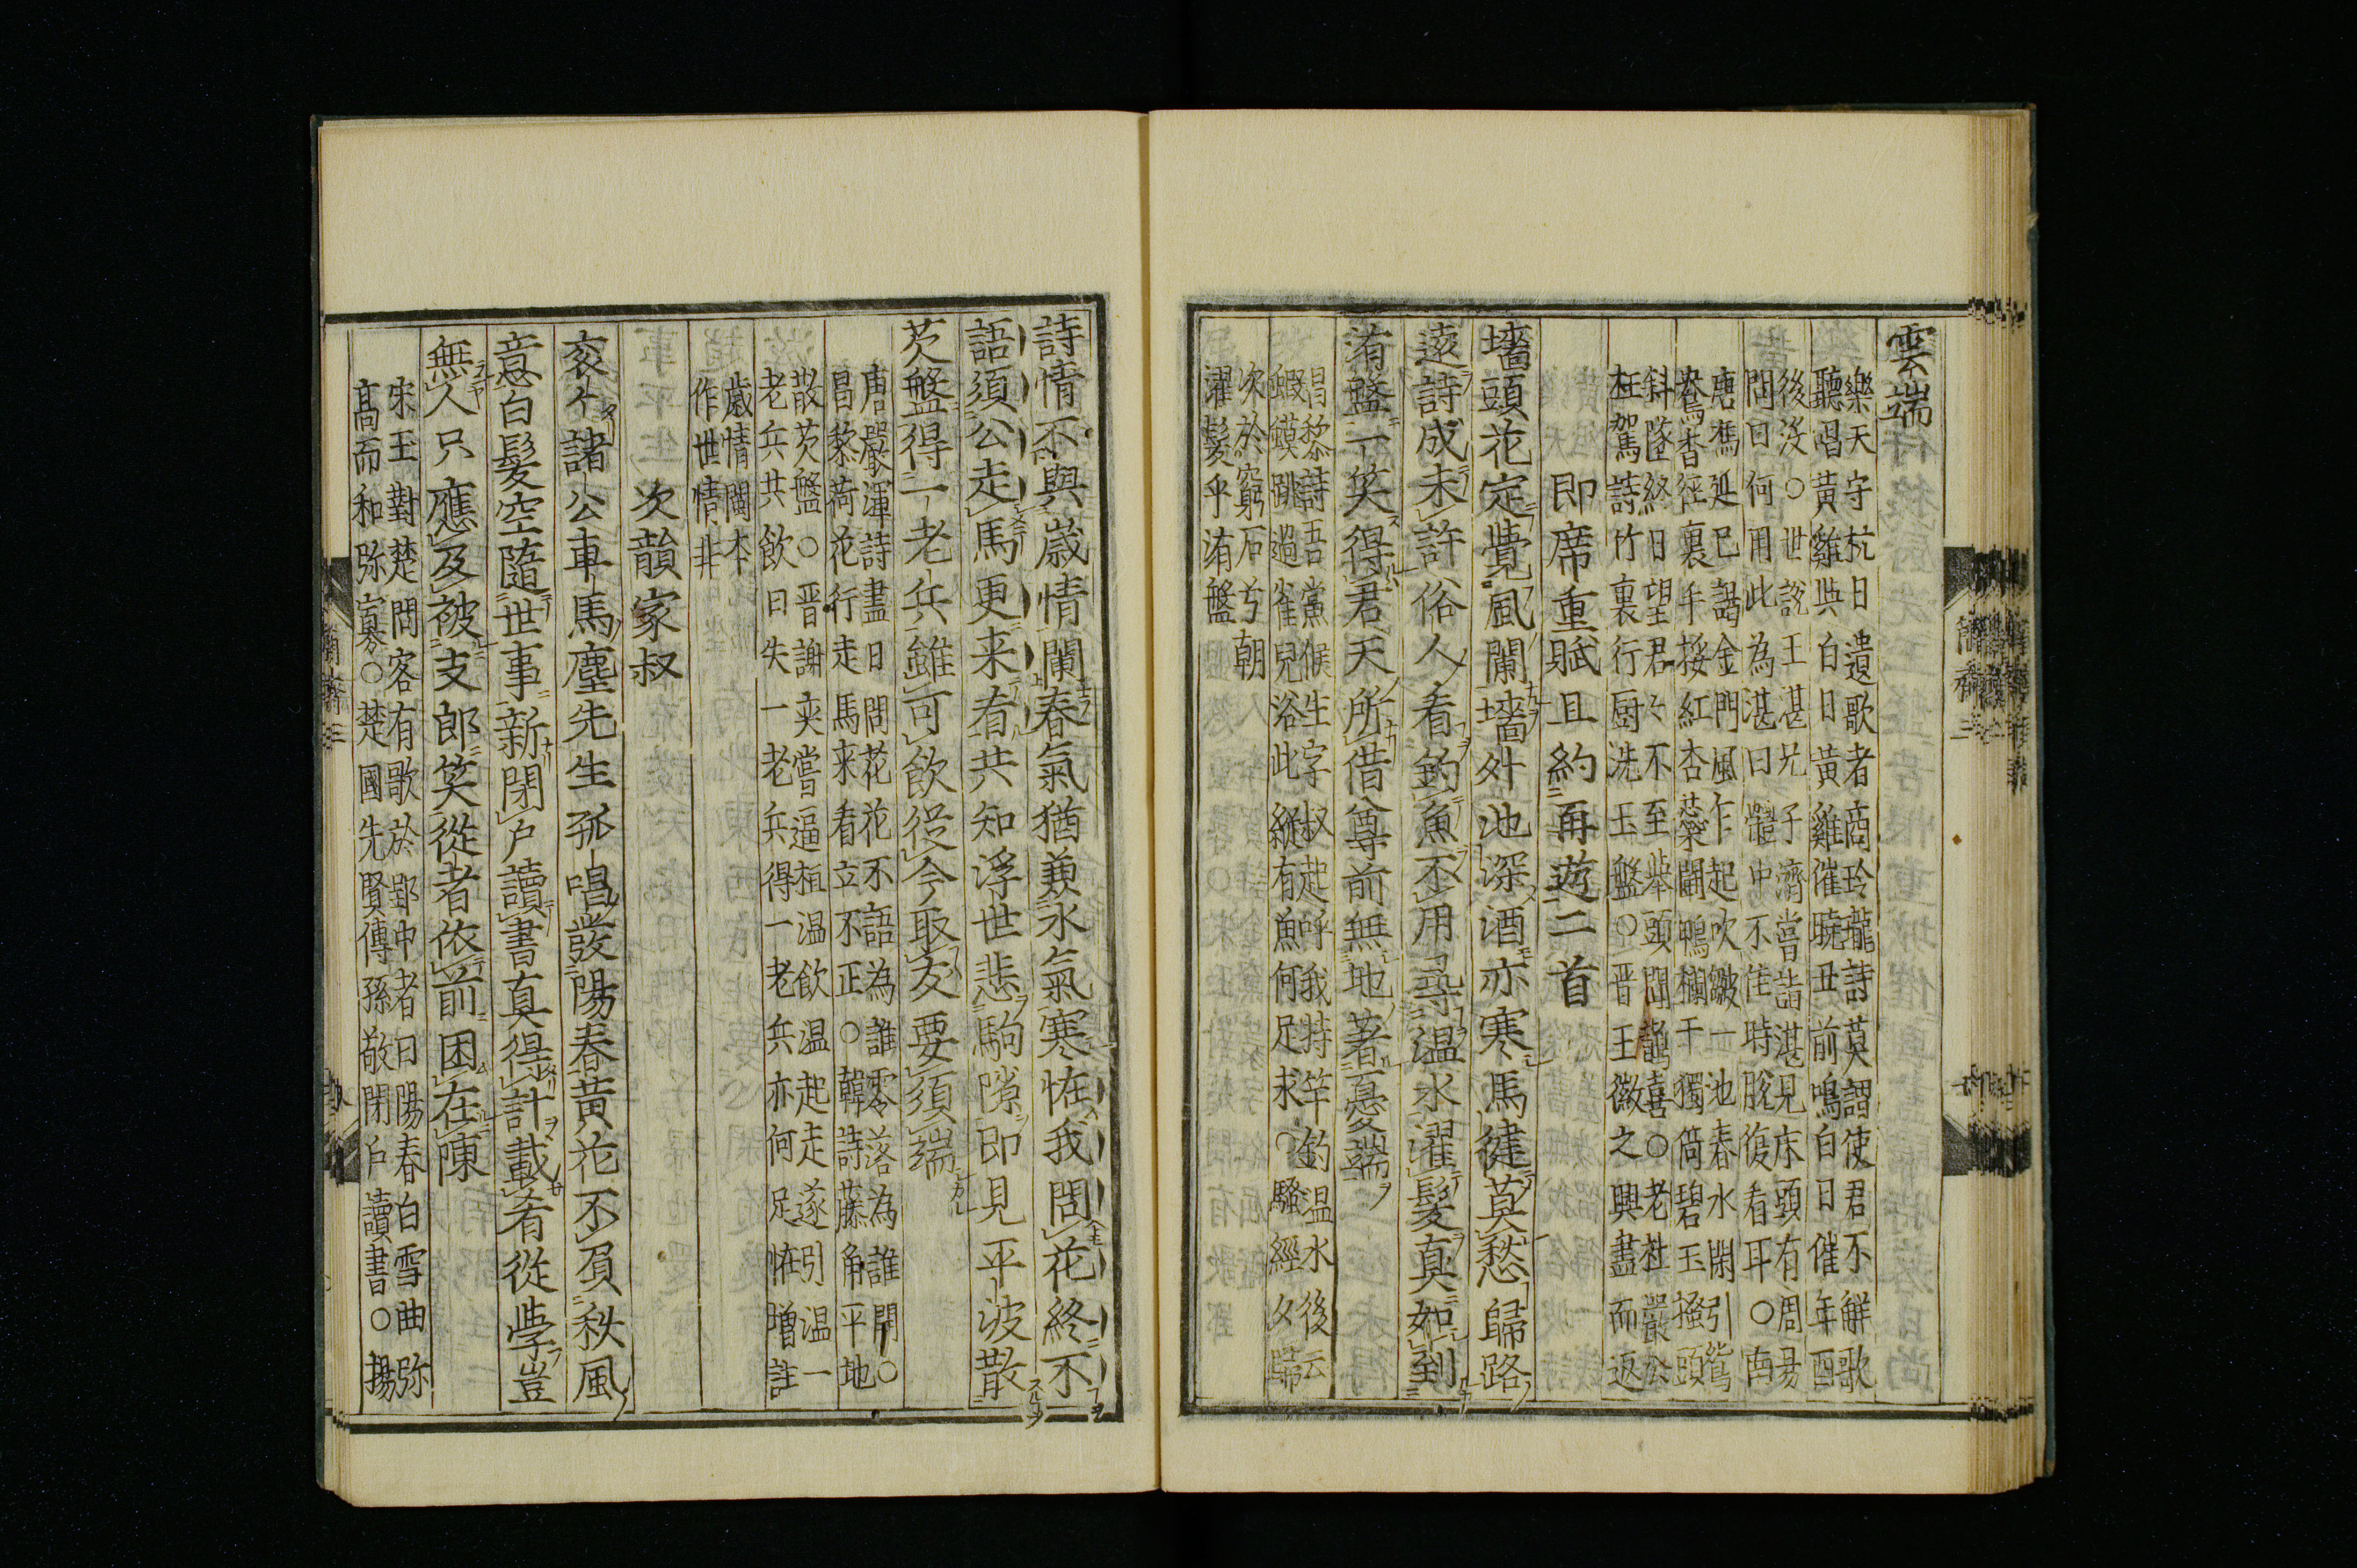 雲端
樂天守杭日遺歌者商玲瓏詩莫謂使君不解歌
聽唱黃雞與白日黃雞催曉丑前鳴白日催年酉
後沒○世說王湛兄子濟嘗詣湛見床頭有周易
問曰何用此為湛曰體中不佳時脫復看耳○南
唐馮延巳謁金門風乍起吹皺一池春水閑引鴛
鴦香徑裏手挼紅杏蘂鬪鴨欄干獨倚碧玉搔頭
斜墜終日望君々不至舉頭聞鵲喜○老杜嚴公
枉駕詩竹裏行厨洗玉盤○晋王徽之興盡而返
即席重賦且約再遊二首
墻頭花定覺風闌墻外池深酒亦寒馬健莫愁歸路
遠詩成未許俗人看釣魚不用尋溫水濯髮真如到
洧盤一笑得君天所借尊前無地著憂端
昌黎詩吾黨候生字叔起呼我持竿釣温水後云
蝦蟆跳過雀兒浴此縱有魚何足求○騷經夕歸
次於窮石兮朝
濯髮乎洧盤
詩情不與歲情闌春氣猶兼水氣寒恠我問花終不
語須公走馬更来看共知浮世悲駒隙即見平波散
芡盤得一老兵雖可飲從今取友要須端
唐嚴渾詩盡日問花花不語為誰零落為誰開○
昌黎荷花行走馬来看立不正○韓詩藤角平地
散芡盤○晋謝奕嘗逼桓温飲温起走遂引温一
老兵共飲曰失一老兵得一老兵亦何足恠增註
歲情闌本
作世情非
次韻家叔
衮々諸公車馬塵先生孤唱發陽春黃花不負秋風
意白髮空隨世事新閉户讀書真得計載肴從學豈
無人只應又被支郎笑從者依前困在陳
宋玉對楚問客有歌於郢中者曰陽春白雪曲弥
高而和弥寡○楚國先賢傳孫敬閉户讀書○揚